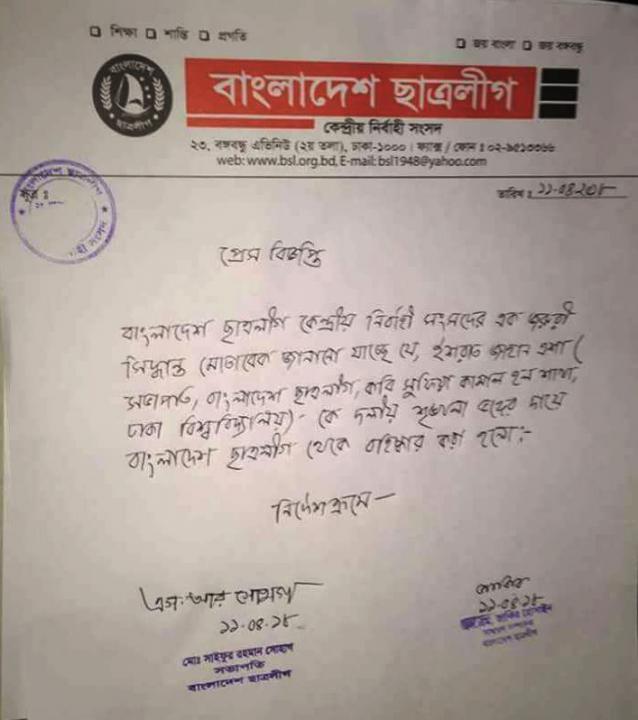 শিক্ষা শান্তি প্রগতি
জয় বাংলা জয় বঙ্গবন্ধু
বাংলাদেশ
ছাত্রলীগ
বাংলাদেশ ছাত্রলীগ
কেন্দ্রীয় নির্বাহী সংসদ
২৩, বঙ্গবন্ধু এভিনিউ (২য় তলা), ঢাকা-১০০০। ফ্যাক্স / ফোন : ০২-৯৫১০৩৬৬
web: www.bsl.org.bd, E-mail: bsl1948@yahoo.com
বাংলাদেশ ছাত্রলীগ
সূত্র :
তারিখ : ১১-০৪-২০১৮
প্রেস বিজ্ঞপ্তি
বাংলাদেশ ছাত্রলীগ কেন্দ্রীয় নির্বাহী সংসদের এক জরুরী
সিদ্ধান্ত মোতাবেক জানানো যাচ্ছে যে, ইশরাত জাহান এশা (
সভাপতি, বাংলাদেশ ছাত্রলীগ, কবি সুফিয়া কামাল হল শাখা,
ঢাকা বিশ্ববিদ্যালয়)- কে দলীয় শৃঙ্খলা ভঙ্গের দায়ে
বাংলাদেশ ছাত্রলীগ থেকে বহিষ্কার করা হলো:-
নির্দেশক্রমে-
এস. আর সোহাগ
১১-০৪-১৮
মোঃ সাইফুর রহমান সোহাগ
সভাপতি
বাংলাদেশ ছাত্রলীগ
জাকির
১১-০৪-১৮
এস.এম. জাকির হোসাইন
সাধারণ সম্পাদক
বাংলাদেশ ছাত্রলীগ